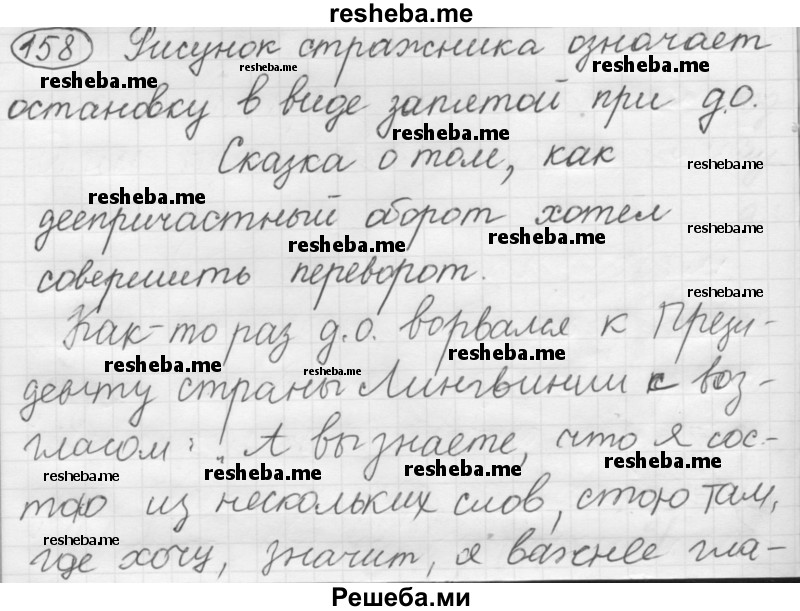 resheba.me
158 Рисунок стражника означает
resheba.me resheba.me resheba.me
остановку в виде запятой при д.о.
resheba.me
Сказка о том, как
resheba.me
resheba.me
деепричастный оборот хотел
resheba.me resheba.me resheba.me
совершить переворот.
resheba.me
Как-то раз д.о. ворвался к Прези-
resheba.me resheba.me resheba.me
денту страны Лингвинии с воз-
гласом: „А вы знаете, что я сос-
resheba.me resheba.me resheba.me
тою из нескольких слов, стою там,
resheba.me resheba.me
где хочу, значит, я важнее гла-
Решеба.ми